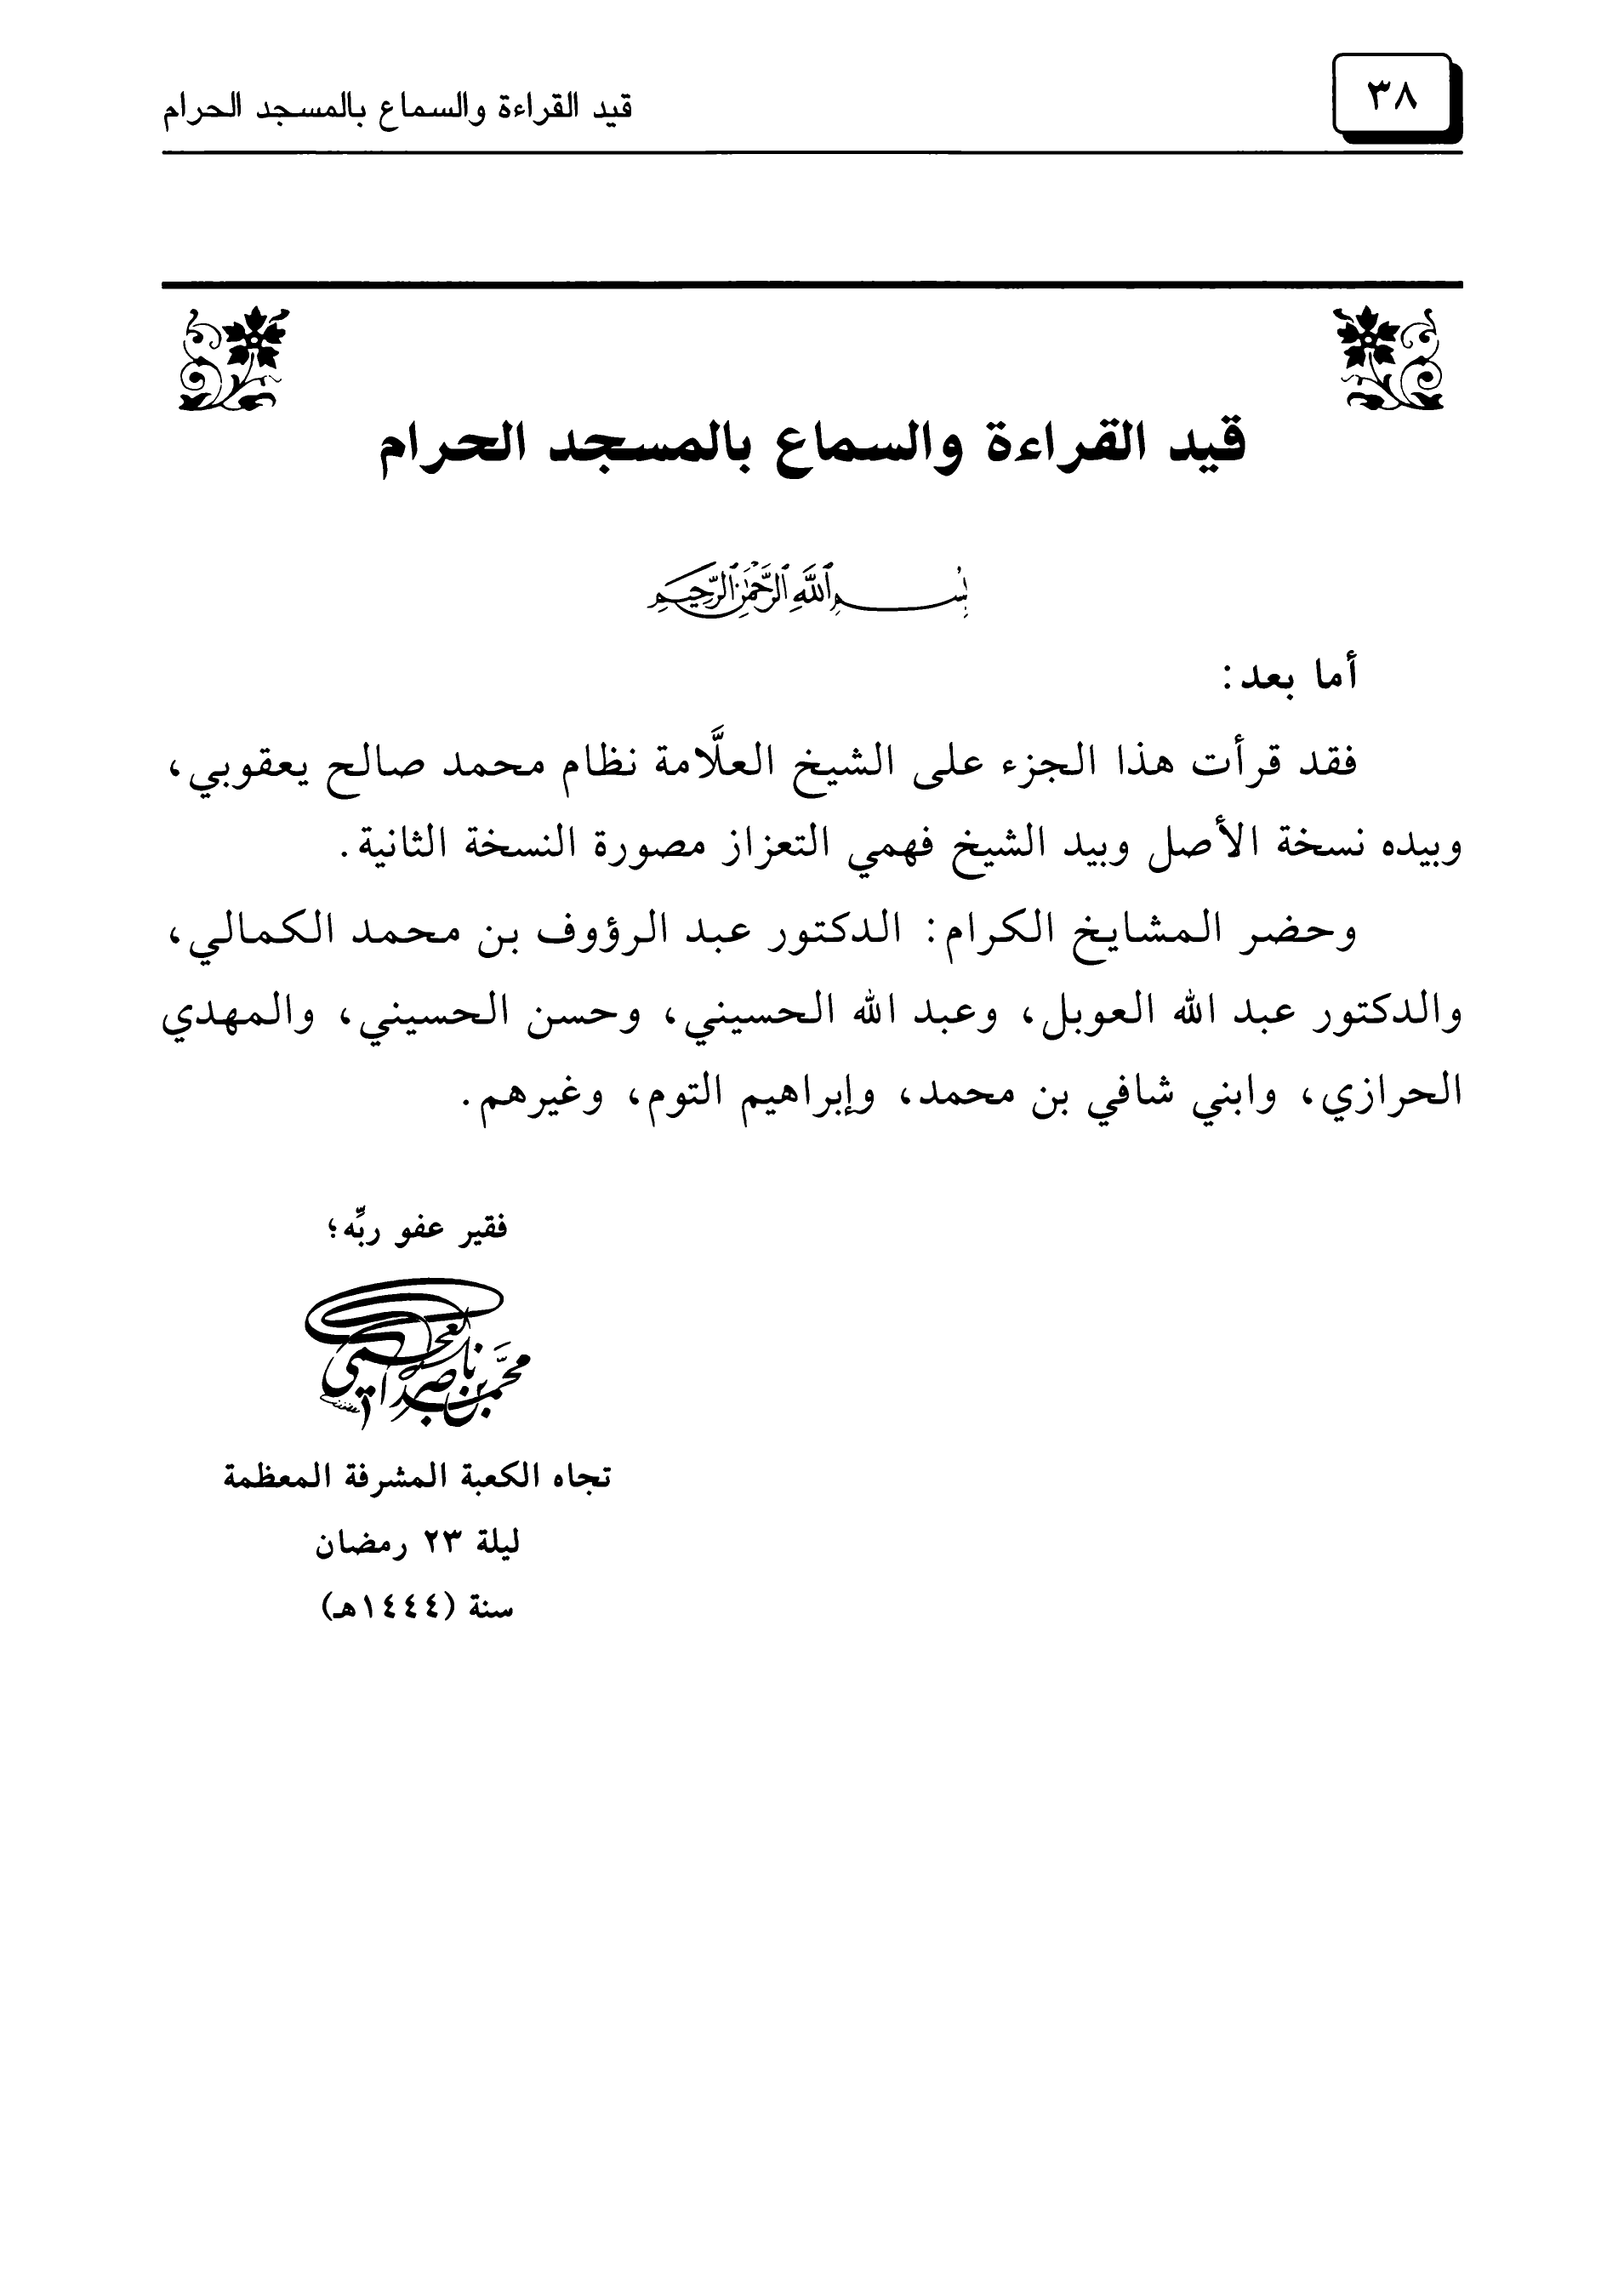 ٣٨
قيد القراءة والسماع بالمسجد الحرام
قيد القراءة والسماع بالمسجد الحرام
بِسْمِ اللَّهِ الرَّحْمَٰنِ الرَّحِيمِ
أما بعد:
فقد قرأت هذا الجزء على الشيخ العلَّامة نظام محمد صالح يعقوبي،
وبيده نسخة الأصل وبيد الشيخ فهمي التعزاز مصورة النسخة الثانية.
وحضر المشايخ الكرام: الدكتور عبد الرؤوف بن محمد الكمالي،
والدكتور عبد الله العوبل، وعبد الله الحسيني، وحسن الحسيني، والمهدي
الحرازي، وابني شافي بن محمد، وإبراهيم التوم، وغيرهم.
فقير عفو ربِّه؛
محمَّد بن ناصر العجمي
تجاه الكعبة المشرفة المعظمة
ليلة ٢٣ رمضان
سنة (١٤٤٤هـ)